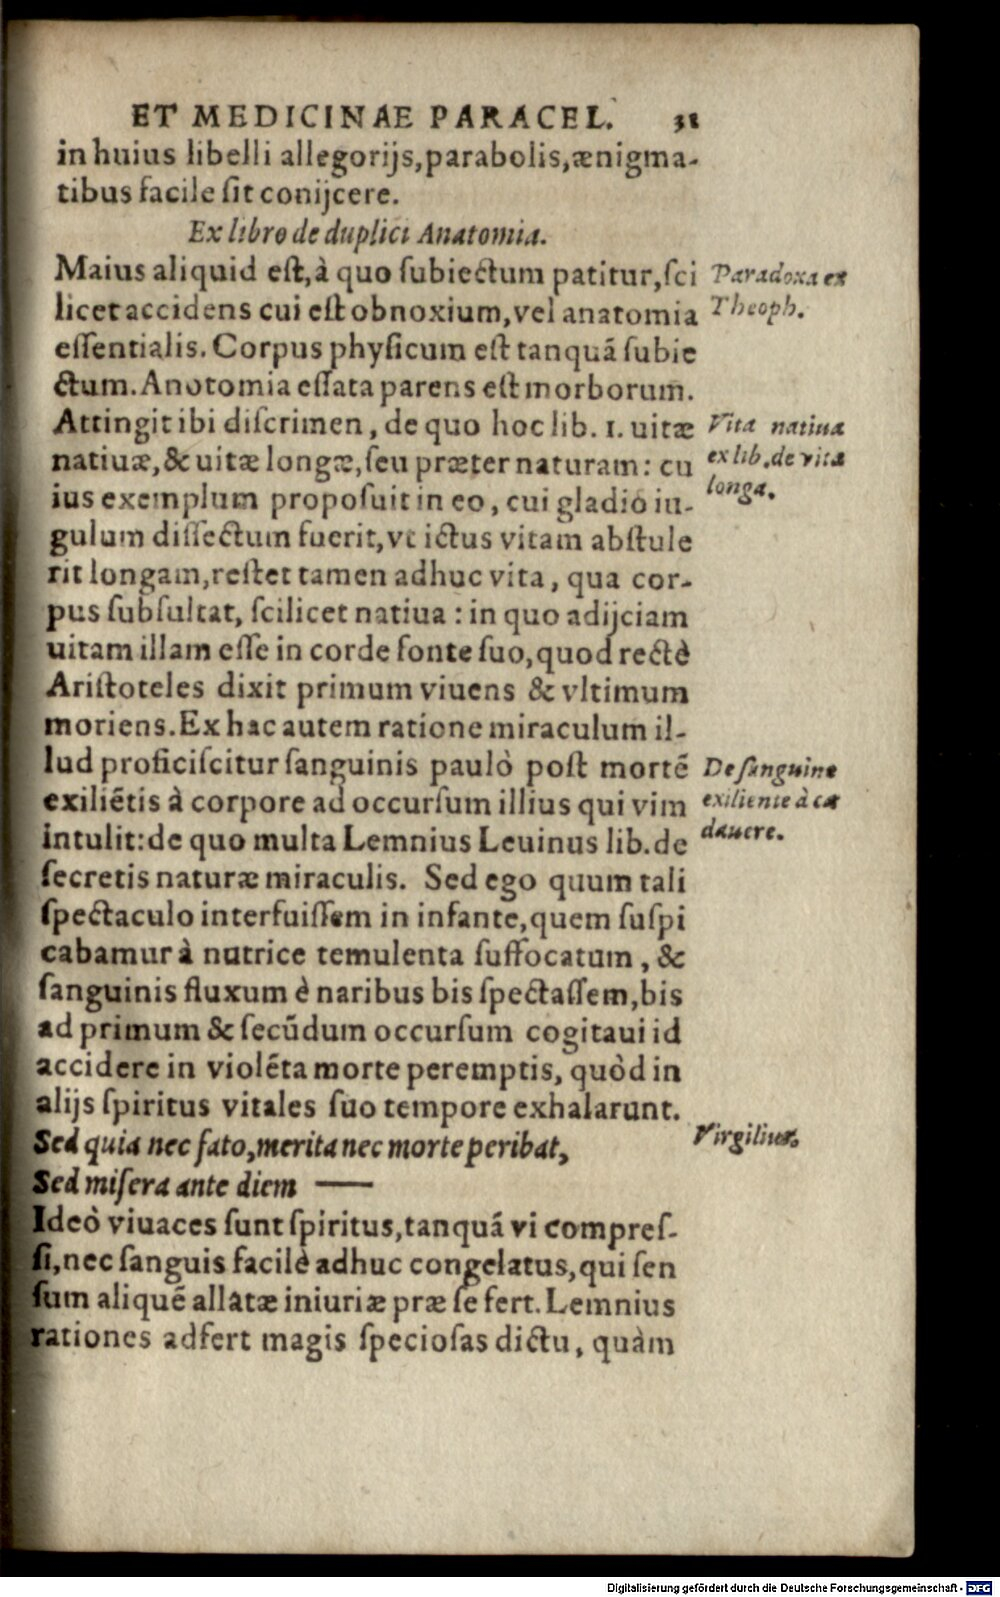 ET MEDICINAE PARACEL. 31
in huius libelli allegorijs, parabolis, ænigma-
tibus facile ſit conijcere.
Ex libro de duplici Anatomia.
Maius aliquid eſt, à quo ſubiectum patitur, ſci
licet accidens cui eſt obnoxium, vel anatomia
eſſentialis. Corpus phyſicum eſt tanquã ſubie
ctum. Anotomia eſſata parens eſt morborum.
Paradoxa ex
Theoph.
Attingit ibi diſcrimen, de quo hoc lib. 1. uitæ
natiuæ, & uitæ longæ, ſeu præter naturam: cu
ius exemplum propoſuit in eo, cui gladio iu-
gulum diſſectum fuerit, vt ictus vitam abſtule
rit longam, reſtet tamen adhuc vita, qua cor-
pus ſubſultat, ſcilicet natiua: in quo adijciam
uitam illam eſſe in corde fonte ſuo, quod rectè
Ariſtoteles dixit primum viuens & vltimum
moriens. Ex hac autem ratione miraculum il-
Vita natiua
ex lib. de vita
longa.
lud proficiſcitur ſanguinis paulò poſt mortẽ
exiliẽtis à corpore ad occurſum illius qui vim
intulit: de quo multa Lemnius Leuinus lib. de
ſecretis naturæ miraculis. Sed ego quum tali
ſpectaculo interfuiſſem in infante, quem ſuſpi
cabamur à nutrice temulenta ſuffocatum, &
ſanguinis fluxum è naribus bis ſpectaſſem, bis
ad primum & ſecũdum occurſum cogitaui id
accidere in violẽta morte peremptis, quòd in
alijs ſpiritus vitales ſuo tempore exhalarunt.
De ſanguine
exiliente à ca
dauere.
Sed quia nec fato, merita nec morte peribat,
Sed miſera ante diem —
Virgilius.
Ideò viuaces ſunt ſpiritus, tanquã vi compreſ-
ſi, nec ſanguis facilè adhuc congelatus, qui ſen
ſum aliquẽ allatæ iniuriæ præ ſe fert. Lemnius
rationes adfert magis ſpecioſas dictu, quàm
Digitalisierung gefördert durch die Deutsche Forschungsgemeinschaft - DFG